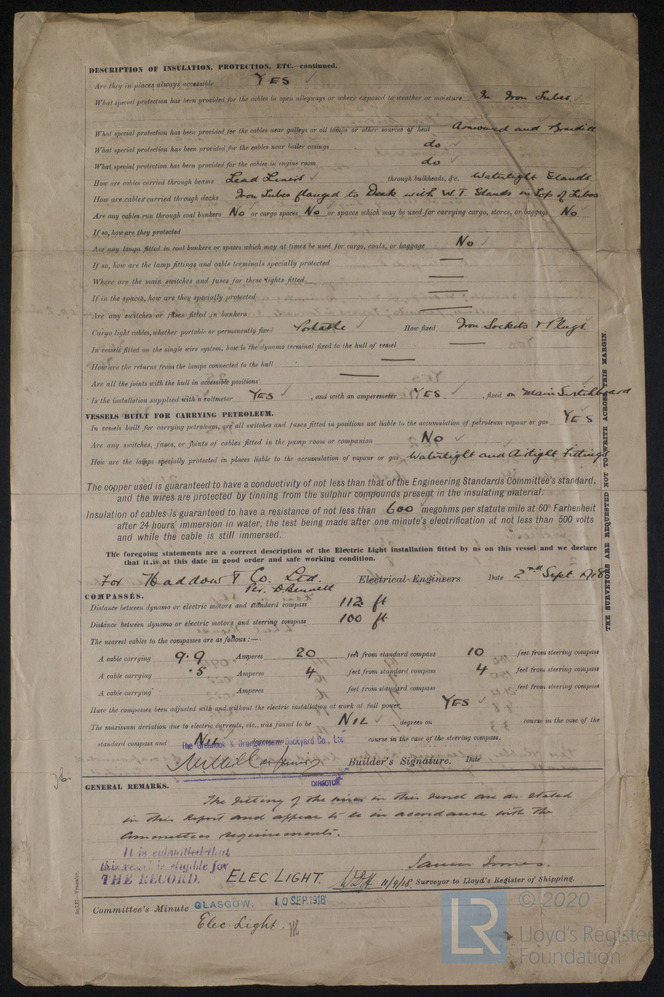 DESCRIPTION OF INSULATION, PROTECTION, ETC.—continued.
Are they in places always accessible YES
What special protection has been provided for the cables in open alleyways or where exposed to weather or moisture In Iron Tubes
What special protection has been provided for the cables near galleys or oil lamps or other sources of heat Armoured and Braided
What special protection has been provided for the cables near boiler casings do
What special protection has been provided for the cables in engine room do
How are cables carried through beams Lead Lined through bulkheads, &c. Watertight Glands
How are cables carried through decks Iron Tubes flanged to Deck with W.T. Glands in Top of Tubes
Are any cables run through coal bunkers No or cargo spaces No or spaces which may be used for carrying cargo, stores, or baggage No
If so, how are they protected
Are any lamps fitted in coal bunkers or spaces which may at times be used for cargo, coals, or baggage No
If so, how are the lamp fittings and cable terminals specially protected —
Where are the main switches and fuses for these lights fitted —
If in the spaces, how are they specially protected —
Are any switches or fuses fitted in bunkers —
Cargo light cables, whether portable or permanently fixed Portable How fixed Iron Sockets & Plugs
In vessels fitted on the single wire system, how is the dynamo terminal fixed to the hull of vessel —
How are the returns from the lamps connected to the hull —
Are all the joints with the hull in accessible positions —
Is the installation supplied with a voltmeter YES, and with an amperemeter YES, fixed on Main Switchboard
VESSELS BUILT FOR CARRYING PETROLEUM.
In vessels built for carrying petroleum, are all switches and fuses fitted in positions not liable to the accumulation of petroleum vapour or gas YES
Are any switches, fuses, or joints of cables fitted in the pump room or companion No
How are the lamps specially protected in places liable to the accumulation of vapour or gas Watertight and Airtight Fittings
The copper used is guaranteed to have a conductivity of not less than that of the Engineering Standards Committee's standard,
and the wires are protected by tinning from the sulphur compounds present in the insulating material.
Insulation of cables is guaranteed to have a resistance of not less than 600 megohms per statute mile at 60° Farhenheit
after 24 hours' immersion in water, the test being made after one minute's electrification at not less than 500 volts
and while the cable is still immersed.
The foregoing statements are a correct description of the Electric Light installation fitted by us on this vessel and we declare
that it is at this date in good order and safe working condition.
For Haddow & Co. Ltd. Electrical Engineers Date 2nd Sept 1918
Per. D. Bennett
COMPASSES.
Distance between dynamo or electric motors and standard compass 112 ft
Distance between dynamo or electric motors and steering compass 100 ft
The nearest cables to the compasses are as follows:—
A cable carrying 9.9 Amperes 20 feet from standard compass 10 feet from steering compass
A cable carrying .5 Amperes 4 feet from standard compass 4 feet from steering compass
A cable carrying Amperes feet from standard compass feet from steering compass
Have the compasses been adjusted with and without the electric installation at work at full power YES
The maximum deviation due to electric currents, etc., was found to be NIL degrees on course in the case of the
standard compass and NIL degrees on course in the case of the steering compass.
The Greenock & Grangemouth Dockyard Co., Ltd.
Builder's Signature. Date
DIRECTOR
GENERAL REMARKS.
The fitting of the wires in this vessel are as stated
in this report and appear to be in accordance with the
Committees requirements.
It is submitted that
this vessel is eligible for
THE RECORD. ELEC LIGHT. 11/9/18 Surveyor to Lloyd's Register of Shipping.
Committee's Minute GLASGOW. 10 SEP. 1918
Elec Light
THE SURVEYORS ARE REQUESTED NOT TO WRITE ACROSS THIS MARGIN.
© 2020
LR
Lloyd's Register
Foundation